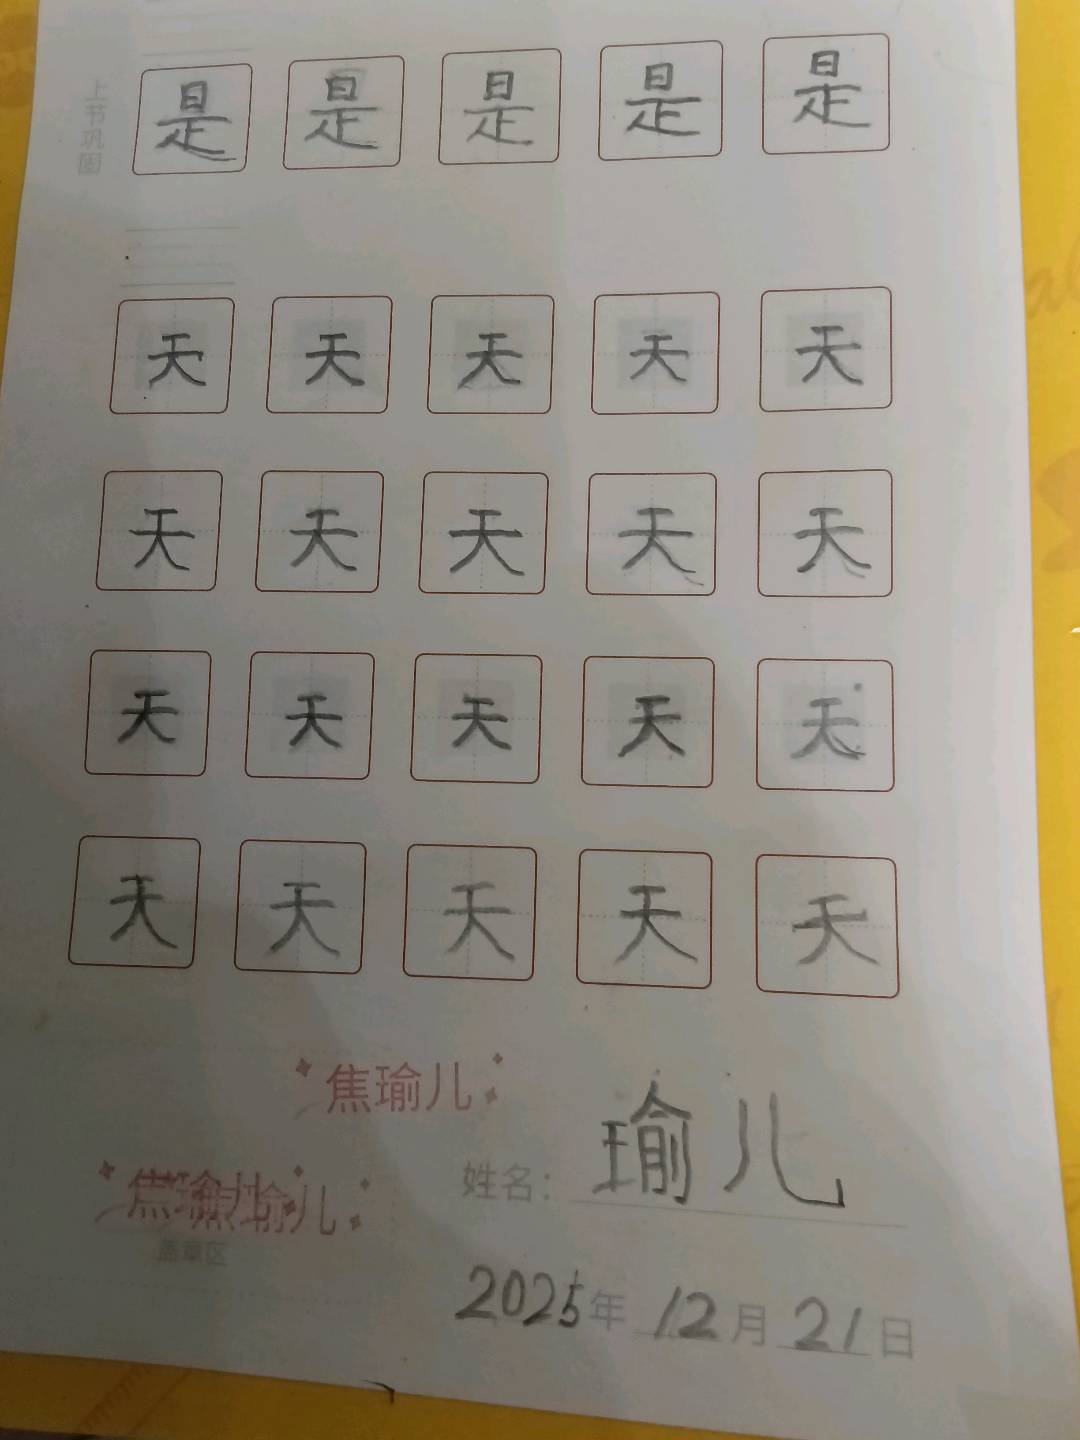 上节巩固
是 是 是 是 是
天 天 天 天 天
天 天 天 天 天
天 天 天 天 天
天 天 天 天 天
焦瑜儿
姓名：瑜儿
焦瑜儿 焦瑜儿
盖章区
2025年12月21日